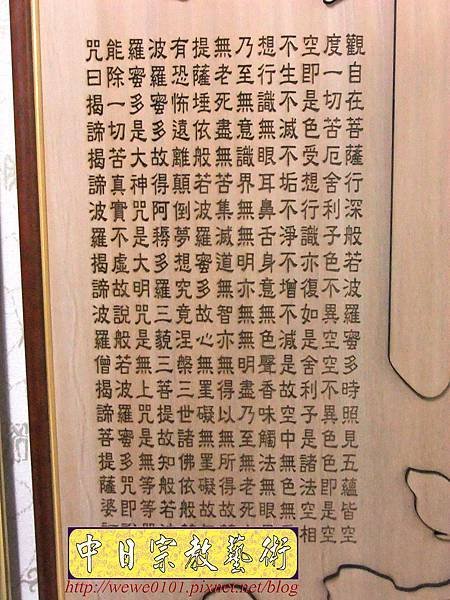 觀自在菩薩行深般若波羅蜜多時照見五蘊皆空
度一切苦厄舍利子色不異空空不異色色即是空
空即是色受想行識亦復如是舍利子是諸法空相
不生不滅不垢不淨不增不減是故空中無色無
想行識無眼耳鼻舌身意無色聲香味觸法無眼
乃至無意識界無無明亦無無明盡乃至無老死
無老死盡無苦集滅道無智亦無得以無所得故
提薩埵依般若波羅蜜多故心無罣礙無罣礙故
有恐怖遠離顛倒夢想究竟涅槃三世諸佛依般
波羅蜜多故得阿耨多羅三藐三菩提故知般若
羅蜜多是大神咒是大明咒是無上咒是無等等
能除一切苦真實不虛故說般若波羅蜜多咒即
咒曰揭諦揭諦波羅揭諦波羅僧揭諦菩提薩婆
中日宗教藝術
http://wewe0101.pixnet.net/blog